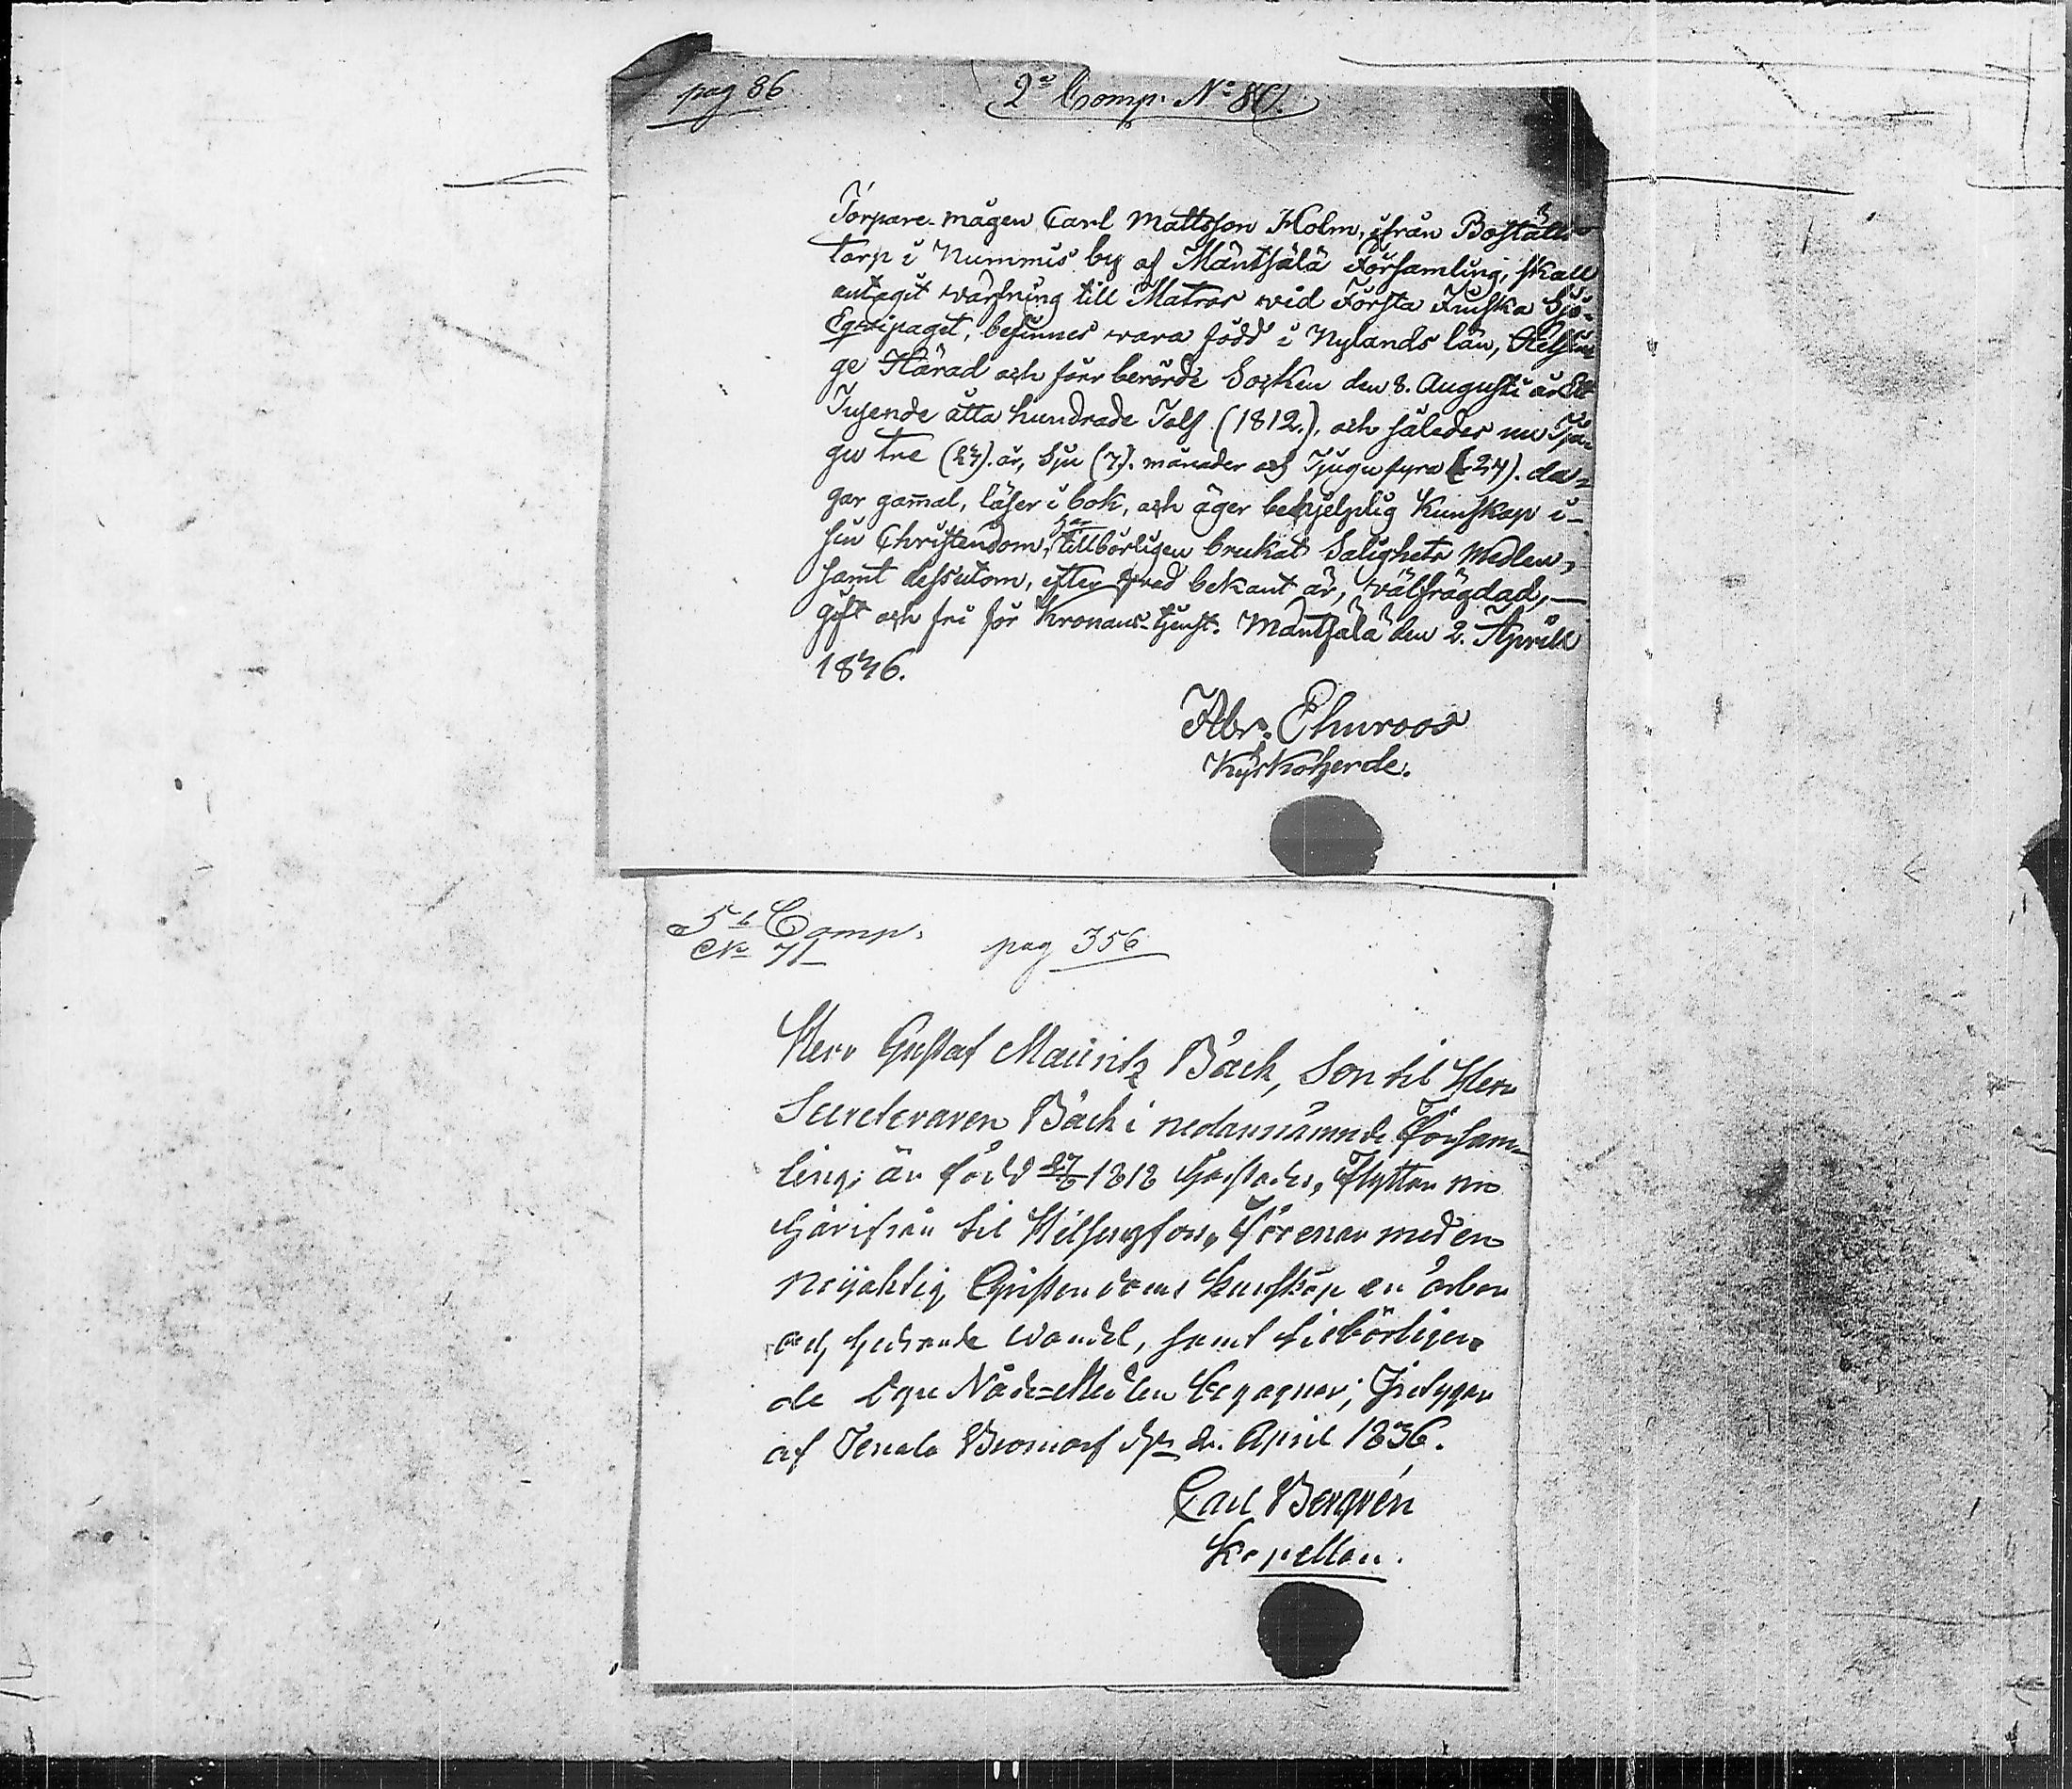 pag 86
2a Comp. No 80.
Torpare-mågen Carl Mattsson Holm, ifrån Boställs
torp i Nummis by af Mäntsälä Församling, skall
antagit värfning till Matros wid Första Finska Sjö-
Equipaget, befinnes wara född i Nylands län, Helsin
ge Härad och förr berörde Socken den 8. Augusti år Ett
Tusende åtta hundrade Tolf (1812.), och således nu Tju-
gu tre (23). år, Sju (7). månader och Tjugufyra (24). da-
gar gam̄al, läser i bok, och äger behjelplig Kunskap i
sin Christendom, har tillbörligen brukat Salighets Medlen,
samt dessutom, efter hvad bekant är, välfrägdad,
gift och fri för Kronans-tjenst. Mäntsälä den 2. Aprill
1836.
Abr. Ehnroos
Kyrkoherde.
5te Comp.
No 71
pag 356
Herr Gustaf Mauritz Bäck, Son til Herr
Secreteraren Bäck i nedannämnde Försam-
ling, är född 27/8 1818 Flyttar nu
härifrån til Helsingfors, Förenar med en
nöjaktig Christendoms kunskap en ärbar
och hedrande wandel, samt tilbörligen
de dyre Nåde-Medlen begagnar; Betygar
af Tenala Bromarf den 2. April 1836.
Carl Bergrén
Kapellan.